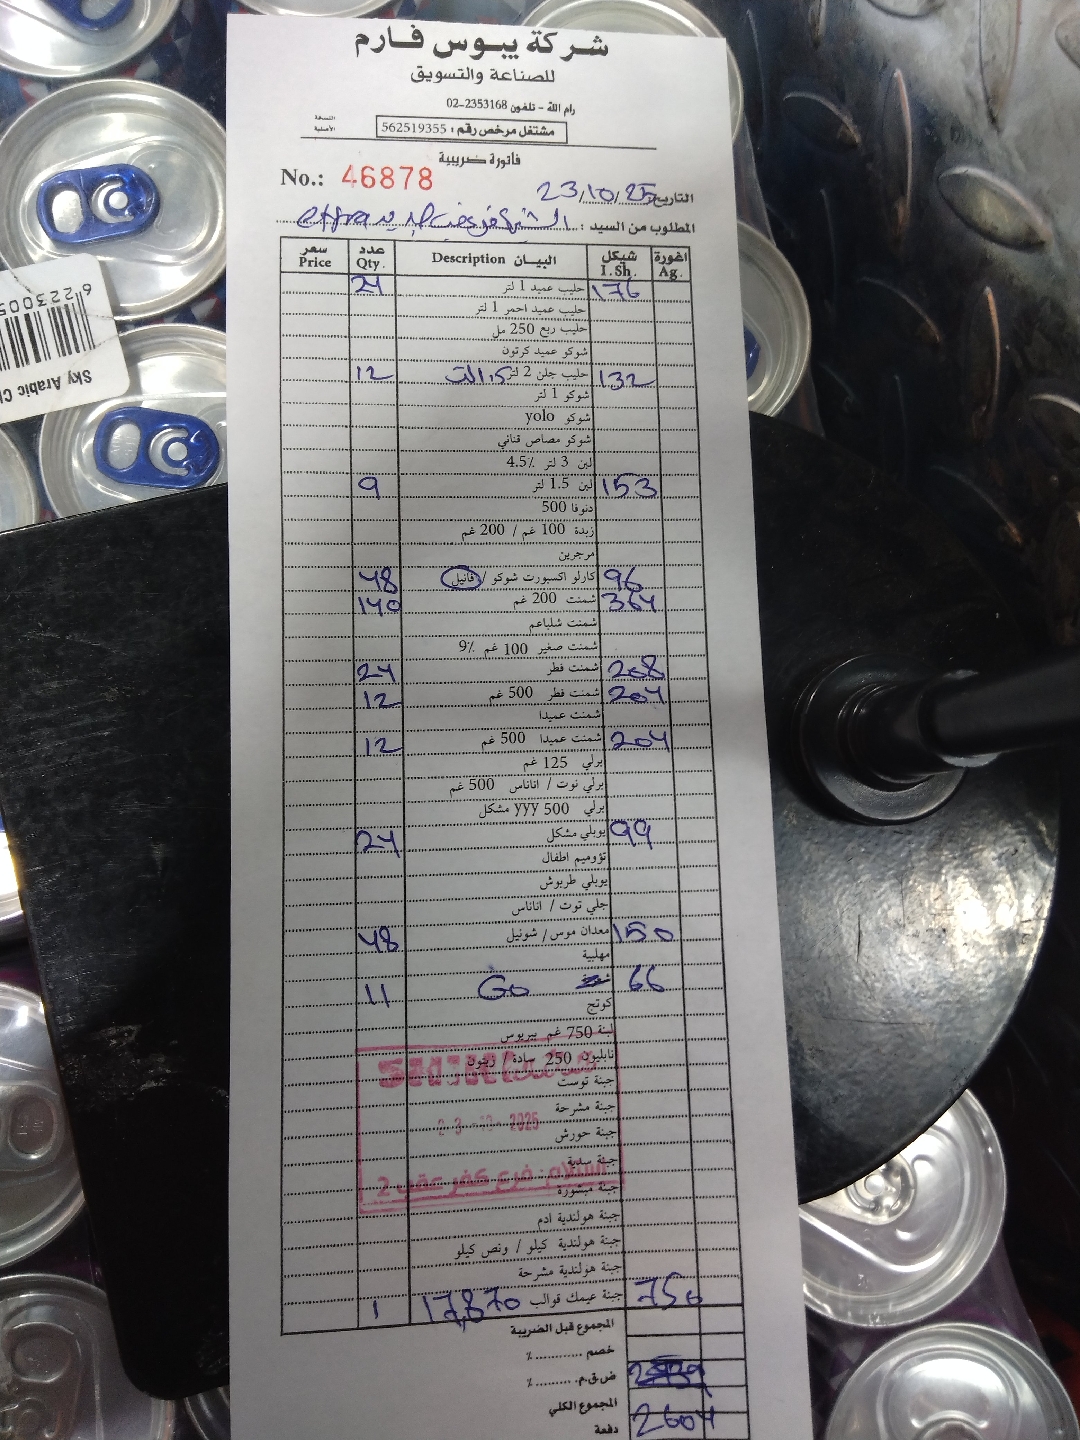 شركة يبوس فارم
للصناعة والتسويق
رام الله - تلفون 2353168-02
مشتغل مرخص رقم : 562519355
النسخة الأصلية
فاتورة ضريبية
No.: 46878
التاريخ 23/10/25
المطلوب من السيد :
سعر Price عدد Qty. البيان Description شيكل I.Sh. اغورة Ag.
24 حليب عميد 1 لتر 176
حليب عميد احمر 1 لتر
حليب ربع 250 مل
شوكو عميد كرتون
12 حليب جلن 2 لتر 132
شوكو 1 لتر
شوكو yolo
شوكو مصاص قناني
لبن 3 لتر 4.5%
9 لبن 1.5 لتر 153
دنوفا 500
زبدة 100 غم / 200 غم
مرجرين
48 كارلو اكسبورت شوكو / فانيل 96
140 شمنت 200 غم 364
شمنت شلباعم
شمنت صغير 100 غم 9%
24 شمنت فطر 208
12 شمنت فطر 500 غم 204
شمنت عميدا
12 شمنت عميدا 500 غم 204
برلي 125 غم
برلي توت / اناناس 500 غم
برلي yyy 500 مشكل
24 يوبلي مشكل 99
تؤوميم اطفال
يوبلي طربوش
جلي توت / اناناس
48 معدان موس / شونيل 150
مهلبية
11 Go 66
كوتج
لبنة 750 غم بيريوس
نابليون 250 سادة / زيتون
جبنة توست
جبنة مشرحة
23-10-2025
جبنة حورش
جبنة سدية
السلام: فرع كفر عقب 2
جبنة مبشورة
جبنة هولندية ادم
جبنة هولندية كيلو / ونص كيلو
جبنة هولندية مشرحة
1 جبنة عيمك قوالب 17,870 750
المجموع قبل الضريبة
خصم ............ %
ض.ق.م. .......... %
المجموع الكلي
دفعة 2604
6223005
Sky Arabic